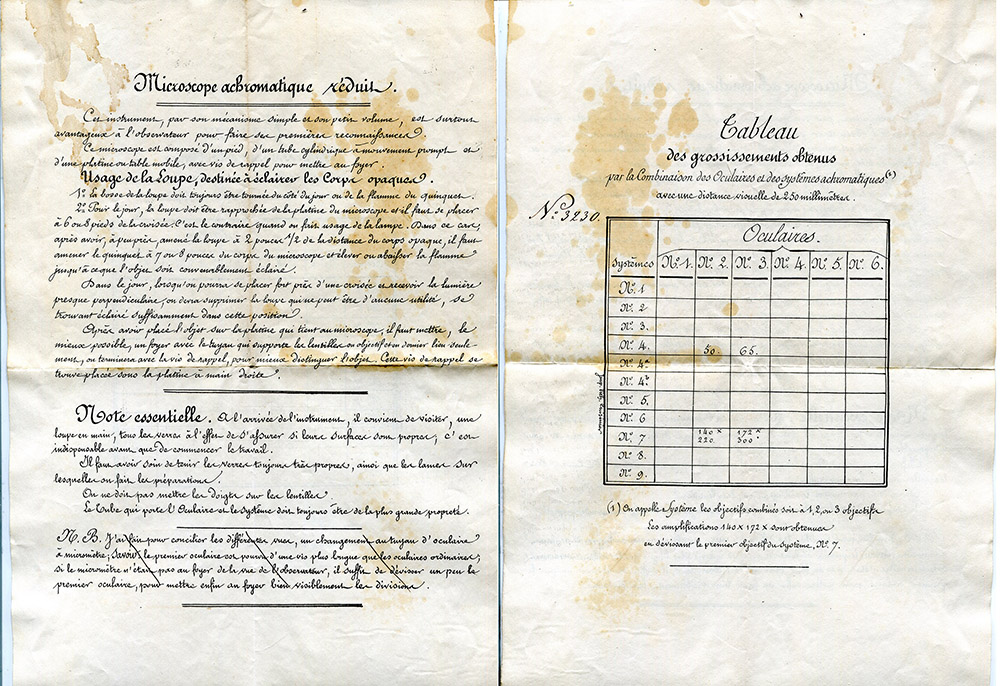 Microscope achromatique réduit.
Cet instrument, par son mécanisme simple et son petit volume, est surtout
avantageux à l'observateur pour faire ses premières reconnaissances.
Ce microscope est composé d'un pied, d'un tube cylindrique à mouvement prompt et
d'une platine ou table mobile, avec vis de rappel pour mettre au foyer.
Usage de la Loupe, destinée à éclairer les Corps opaques.
1º La bosse de la loupe doit toujours être tournée du côté du jour ou de la flamme du quinquet.
2º Pour le jour, la loupe doit être rapprochée de la platine du microscope et il faut se placer
à 6 ou 8 pieds de la croisée. C'est le contraire quand on fait usage de la lampe. Dans ce cas,
après avoir, à peu près, amené la loupe à 2 pouces 1/2 de la distance du corps opaque, il faut
amener le quinquet à 7 ou 8 pouces du corps du microscope et élever ou abaisser la flamme
jusqu'à ce que l'objet soit convenablement éclairé.
Dans le jour, lorsqu'on pourra se placer fort près d'une croisée et recevoir la lumière
presque perpendiculaire, on devra supprimer la loupe qui ne peut être d'aucune utilité, se
trouvant éclairé suffisamment dans cette position.
Après avoir placé l'objet sur la platine qui tient au microscope, il faut mettre, le
mieux possible, au foyer avec le tuyau qui supporte les lentilles ou objectif et en dernier lieu seule-
ment, on terminera avec la vis de rappel, pour mieux distinguer l'objet. Cette vis de rappel se
trouve placée sous la platine à main droite.
Note essentielle. A l'arrivée de l'instrument, il convient de visiter, une
loupe en main, tous les verres à l'effet de s'assurer si leurs surfaces sont propres, c'est
indispensable avant que de commencer le travail.
Il faut avoir soin de tenir les verres toujours très propres, ainsi que les lames sur
lesquelles on fait les préparations.
On ne doit pas mettre les doigts sur les lentilles.
Le Tube qui porte l'Oculaire et le Système doit toujours être de la plus grande propreté.
N. B. J'ai fait pour concilier les différentes vues, un changement au tuyau d'oculaire
à micromètre; Savoir: le premier oculaire est pourvu d'une vis plus longue que les oculaires ordinaires;
si le micromètre n'était pas au foyer de la vue de l'observateur, il suffit de dévisser un peu le
premier oculaire, pour mettre enfin au foyer bien visiblement les divisions.
Tableau
des grossissements obtenus
par la Combinaison des Oculaires et des systèmes achromatiques (1)
avec une distance visuelle de 250 millimètres.
Nº 3230.
Oculaires.
Systèmes Nº 1. Nº 2. Nº 3. Nº 4. Nº 5. Nº 6.
Nº 1
Nº 2
Nº 3.
Nº 4. 50. 65.
Nº 4ª
Nº 4b
Nº 5.
Nº 6
Nº 7 140 x 172 x
220 300 x
Nº 8.
Nº 9.
(1) On appelle Système les objectifs combinés soit à 1, 2, ou 3 objectifs
Les amplifications 140 x 172 x sont obtenues
en dévissant le premier objectif du système, Nº 7.